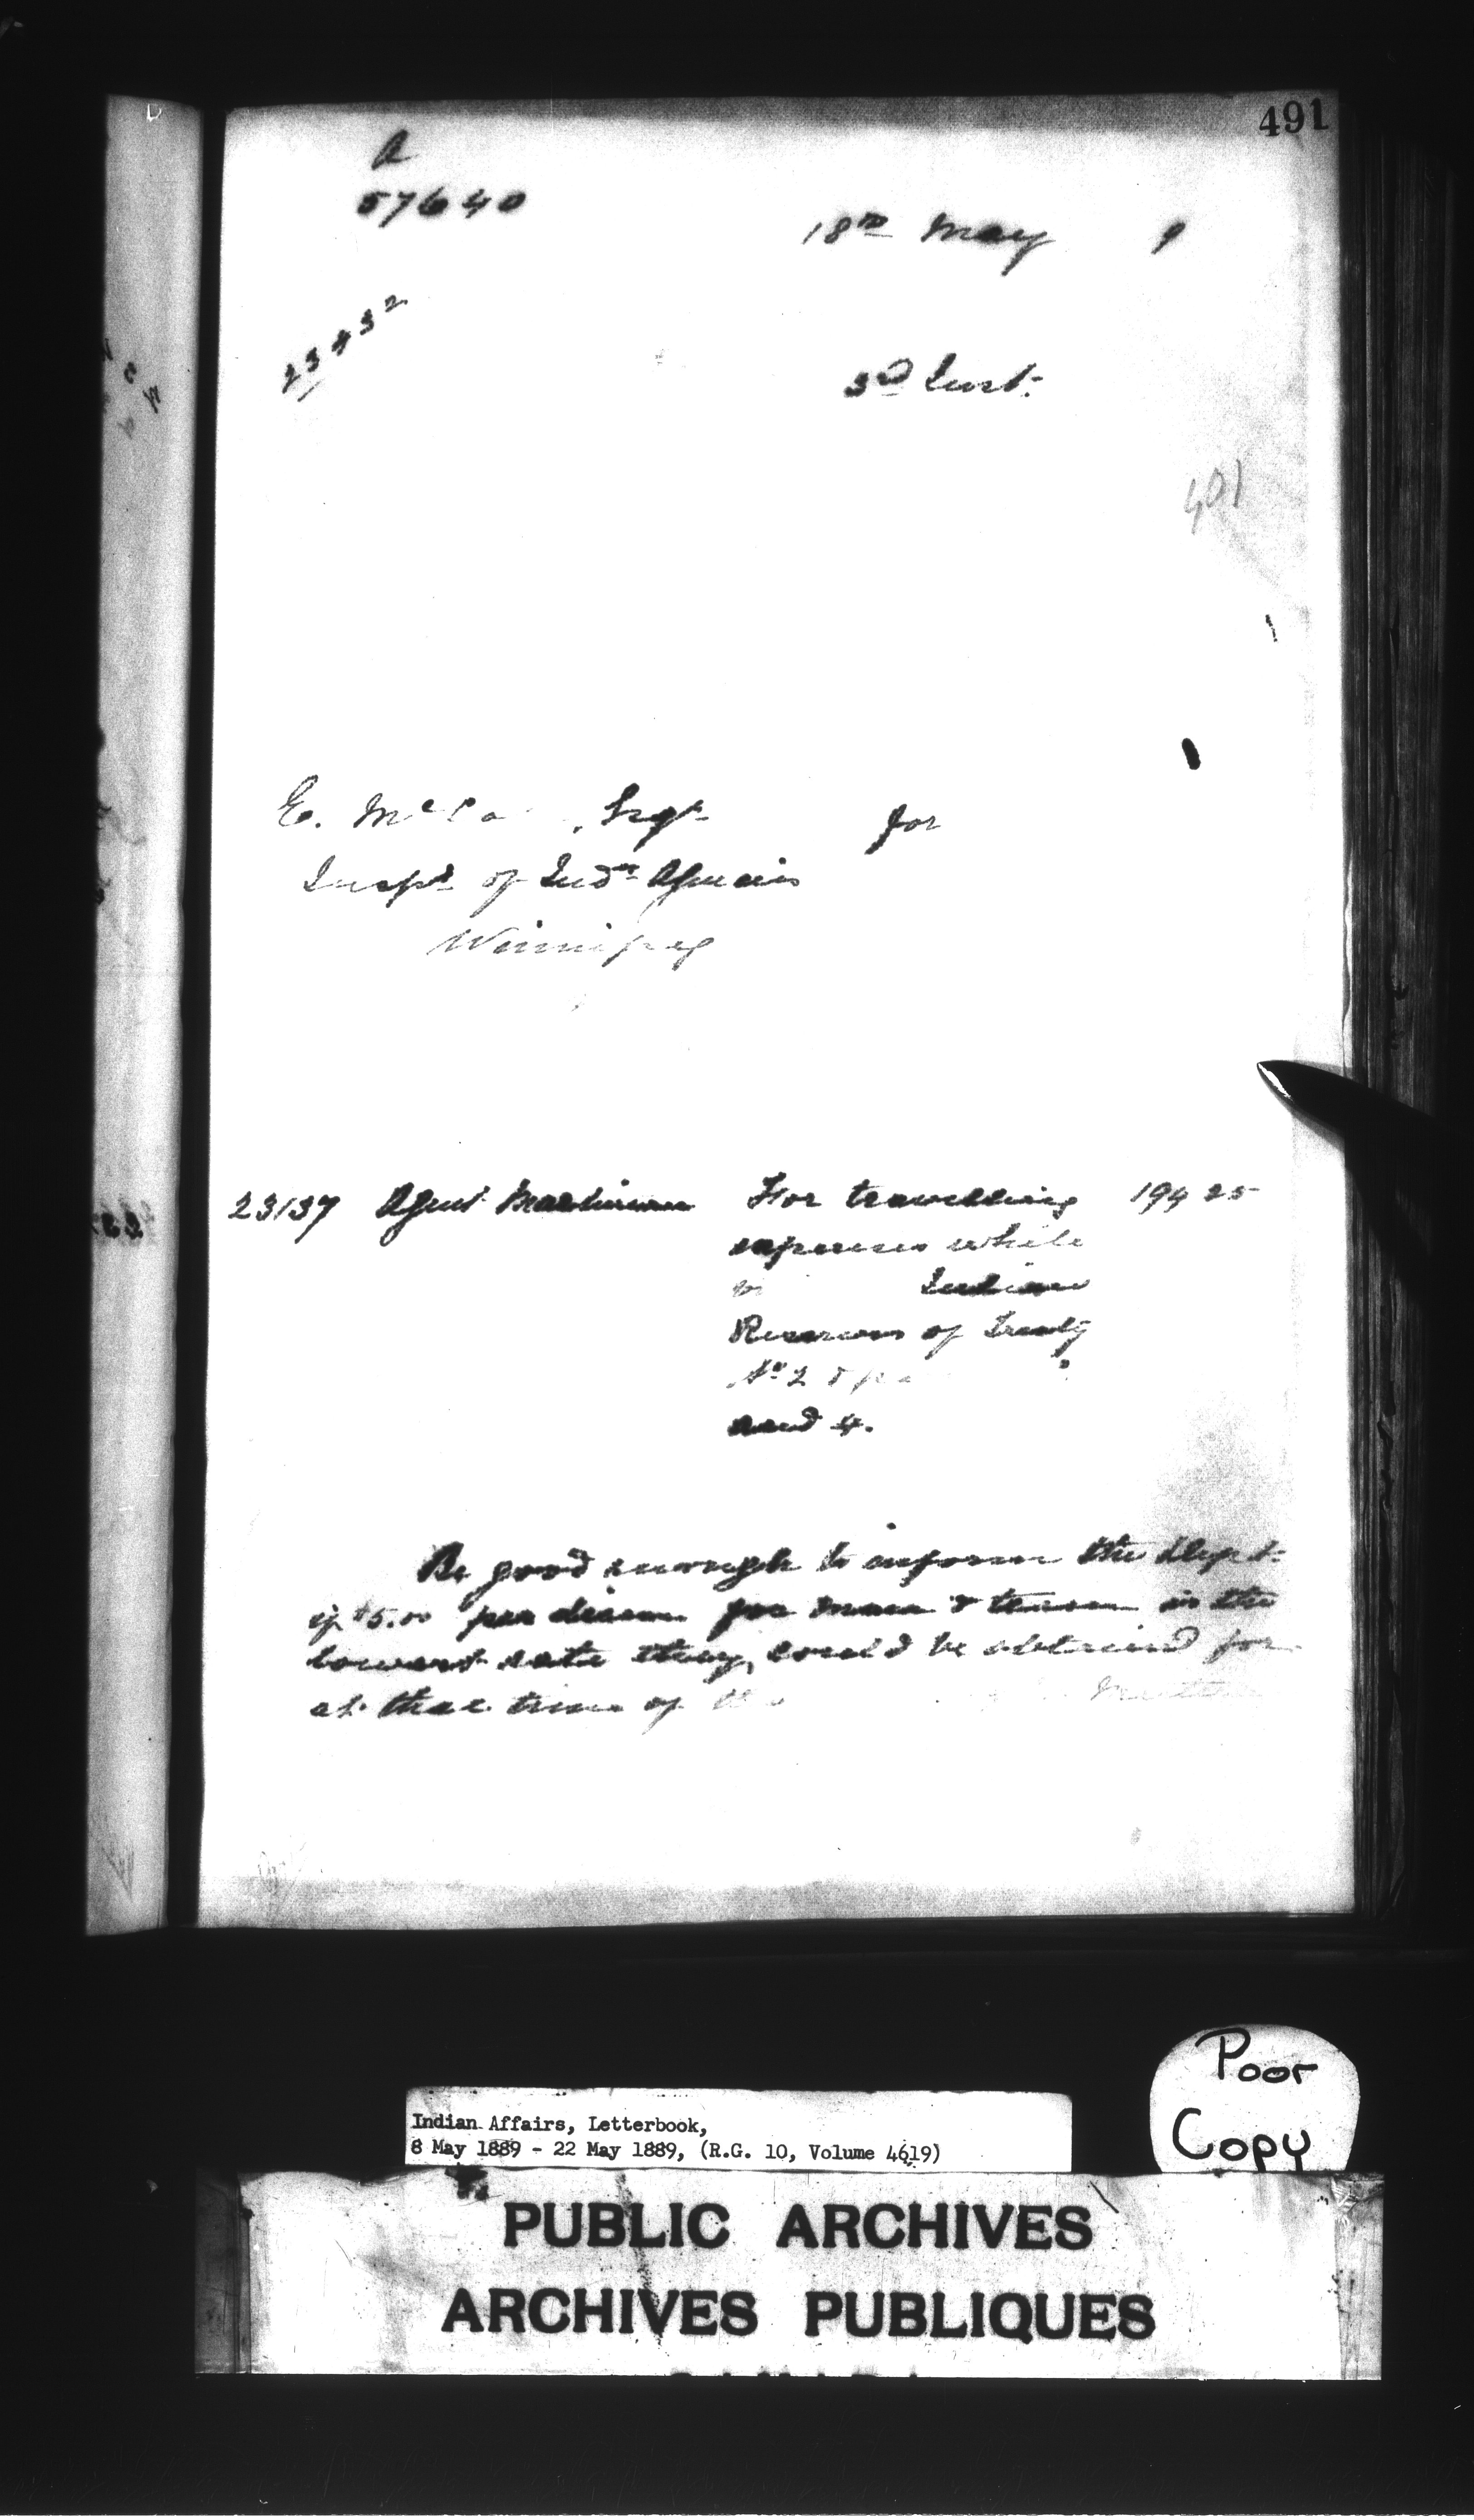 491
A
57640
18th May 9
23432
3d Inst.
401
E. McCo , Esqr
for
Inspr of Indn Agencies
Winnipeg
23137 Agent Martineau For travelling 194 25
expenses while
Indian
Reserves of Treaty
No 2
and 4.
Be good enough to inform the Dept.
if $5.00 per diem for man & team is the
lowest rate they could be obtained for
at that time of
Poor
Copy
Indian Affairs, Letterbook,
8 May 1889 - 22 May 1889, (R.G. 10, Volume 4619)
PUBLIC ARCHIVES
ARCHIVES PUBLIQUES